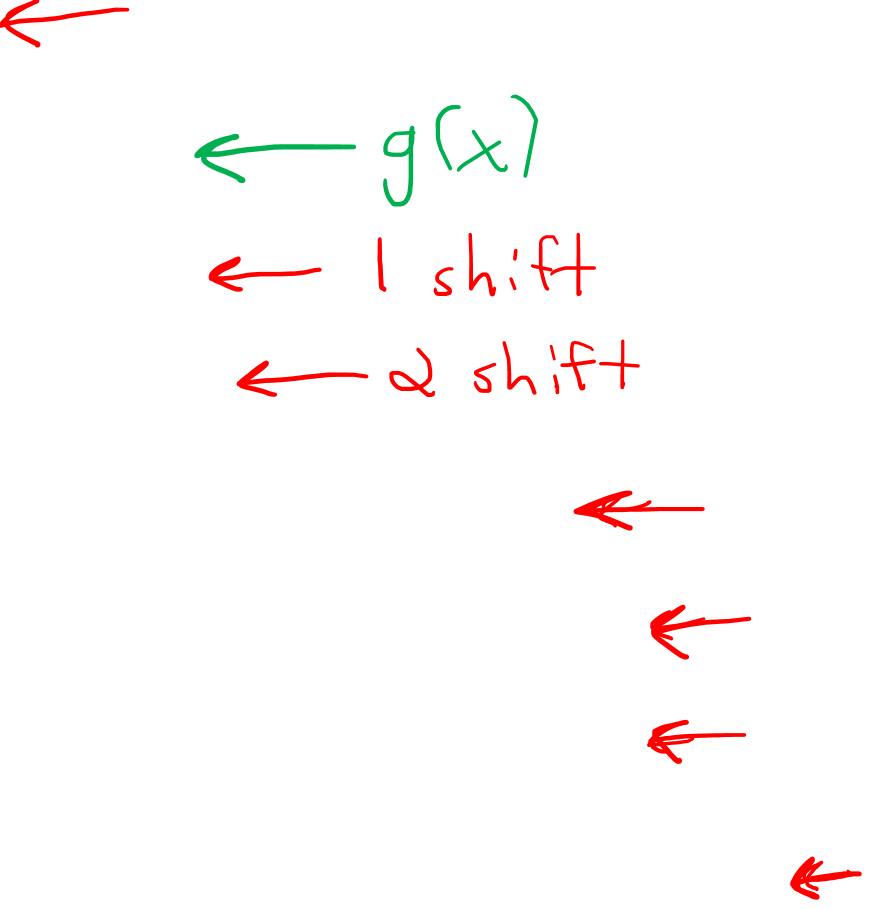 g(x)
1 shift
2 shift